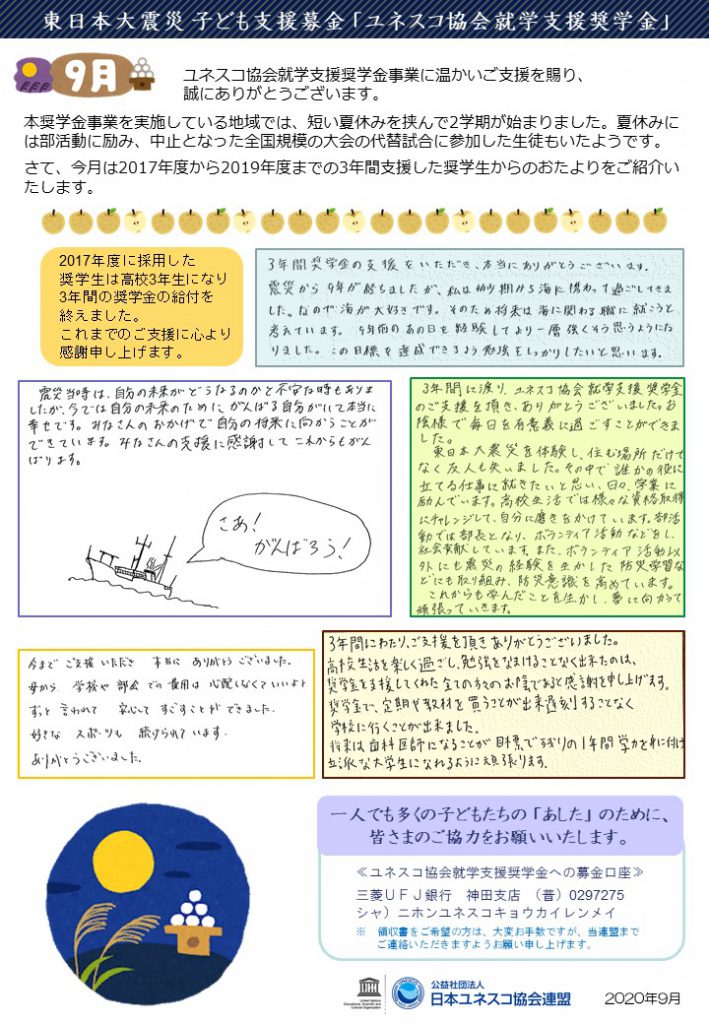 東日本大震災 子ども支援募金「ユネスコ協会就学支援奨学金」
9月
ユネスコ協会就学支援奨学金事業に温かいご支援を賜り、
誠にありがとうございます。
本奨学金事業を実施している地域では、短い夏休みを挟んで2学期が始まりました。夏休みに
は部活動に励み、中止となった全国規模の大会の代替試合に参加した生徒もいたようです。
さて、今月は2017年度から2019年度までの3年間支援した奨学生からのおたよりをご紹介い
たします。
2017年度に採用した
奨学生は高校3年生になり
3年間の奨学金の給付を
終えました。
これまでのご支援に心より
感謝申し上げます。
3年間奨学金の支援をいただき、本当にありがとうございます。
震災から9年が経ちましたが、私は幼少期から海に携わって過ごしてきま
した。なので海が大好きです。そのため将来は海に関わる職に就こうと
考えています。9年前のあの日を経験してより一層強くそう思うようにな
りました。この目標を達成できるよう勉強をしっかりしたいと思います。
震災当時は、自分の未来がどうなるのかと不安な時もありま
したが、今では自分の未来のために、がんばる自分がいて本当に
幸せです。みなさんのおかげで自分の将来に向かうことが
できています。みなさんの支援に感謝してこれからもがん
ばります。
さあ!
がんばろう!
3年間に渡り、ユネスコ協会就学支援奨学金
のご支援を頂き、ありがとうございました。お
陰様で毎日を有意義に過ごすことができま
した。
東日本大震災を体験し、住む場所だけで
なく友人も失いました。その中で誰かの役に
立てる仕事に就きたいと思い、日々、学業に
励んでいます。高校生活では様々な資格取得
にチャレンジして、自分に磨きをかけています。部活
動では部長となり、ボランティア活動などをし、
社会貢献しています。また、ボランティア活動以
外にも震災の経験を生かした防災学習な
どにも取り組み、防災意識を高めています。
これからも学んだことを生かし、夢に向かって
頑張っていきます。
今まで ご支援いただき 本当に ありがとうございました。
母から 学校や部会での費用は心配しなくていいよと
ずっと言われて 安心してすごすことができました。
好きなスポーツも続けられています。
ありがとうございました。
3年間にわたり、ご支援を頂きありがとうございました。
高校生活を楽しく過ごし、勉強をなまけることなく出来たのは、
奨学金を支援してくれた全ての方々のお陰であると感謝を申し上げます。
奨学金で、定期や教材を買うことが出来遅刻することなく
学校に行くことが出来ました。
将来は歯科医師になることが目標で残りの1年間学力を身に付け
立派な大学生になれるように頑張ります。
一人でも多くの子どもたちの「あした」のために、
皆さまのご協力をお願いいたします。
≪ユネスコ協会就学支援奨学金への募金口座≫
三菱UFJ銀行 神田支店 (普)0297275
シャ)ニホンユネスコキョウカイレンメイ
※ 領収書をご希望の方は、大変お手数ですが、当連盟まで
ご連絡いただきますようお願い申し上げます。
United Nations
Educational, Scientific and
Cultural Organization
公益社団法人
日本ユネスコ協会連盟
2020年9月